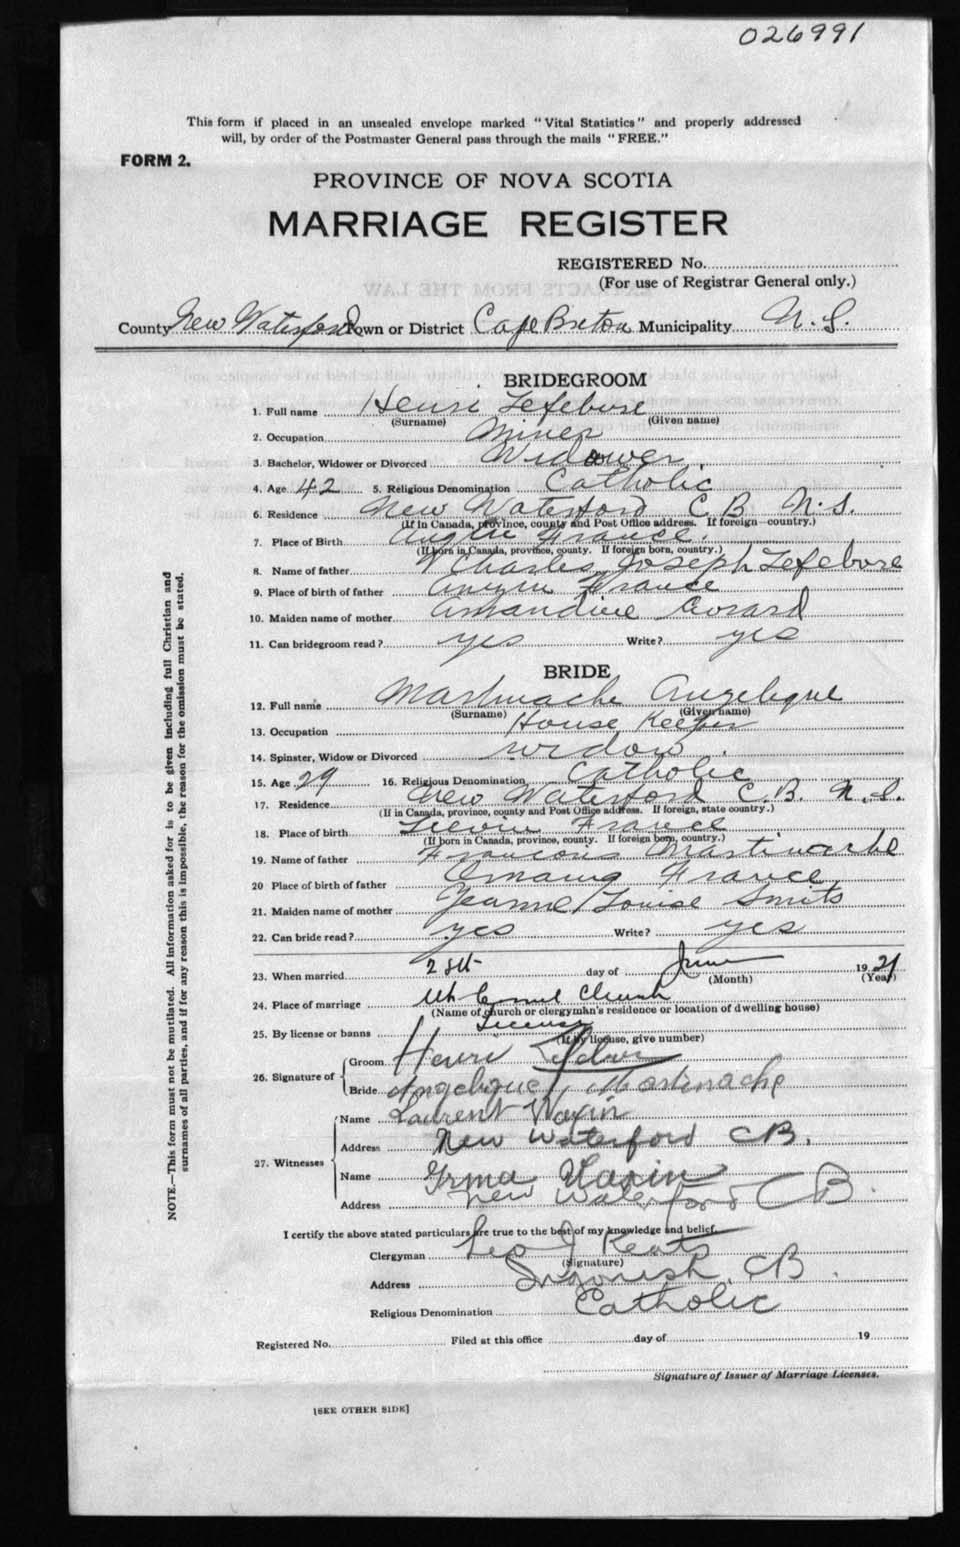 026991
This form if placed in an unsealed envelope marked "Vital Statistics" and properly addressed
will, by order of the Postmaster General pass through the mails "FREE."
FORM 2.
PROVINCE OF NOVA SCOTIA
MARRIAGE REGISTER
REGISTERED No.
(For use of Registrar General only.)
County New Waterford Town or District Cape Breton Municipality N.S.
BRIDEGROOM
1. Full name Henri Lefebvre
(Surname) (Given name)
2. Occupation Miner
3. Bachelor, Widower or Divorced Widower.
4. Age 42 5. Religious Denomination Catholic
6. Residence New Waterford C B N.S.
(If in Canada, province, county and Post Office address. If foreign—country.)
7. Place of Birth France.
(If born in Canada, province, county. If foreign born, country.)
8. Name of father Charles Joseph Lefebvre
9. Place of birth of father France
10. Maiden name of mother Amandine
11. Can bridegroom read? yes Write? yes
BRIDE
12. Full name Martinache Angelique
(Surname) (Given name)
13. Occupation House Keeper
14. Spinster, Widow or Divorced widow.
15. Age 29 16. Religious Denomination Catholic
17. Residence New Waterford C.B. N.S.
(If in Canada, province, county and Post Office address. If foreign, state country.)
18. Place of birth Lievin France
(If born in Canada, province, county. If foreign born, country.)
19. Name of father Francois Martinache
20 Place of birth of father France
21. Maiden name of mother Jeanne Louise Smits
22. Can bride read? yes Write? yes
23. When married day of June 1921
(Month) (Year)
24. Place of marriage Mt Carmel Church
(Name of church or clergyman's residence or location of dwelling house)
25. By license or banns License
(If by license, give number)
26. Signature of Groom Henri Lefebvre
Bride Angelique Martinache
27. Witnesses Name Laurent Waxin
Address New Waterford CB.
Name Irma Waxin
Address New Waterford CB.
I certify the above stated particulars are true to the best of my knowledge and belief.
Clergyman Leo J Keats
(Signature)
Address Ingonish, CB.
Religious Denomination Catholic
Registered No. Filed at this office day of 19
Signature of Issuer of Marriage Licenses.
[SEE OTHER SIDE]
NOTE.—This form must not be mutilated. All information asked for is to be given including full Christian and
surnames of all parties, and if for any reason this is impossible, the reason for the omission must be stated.